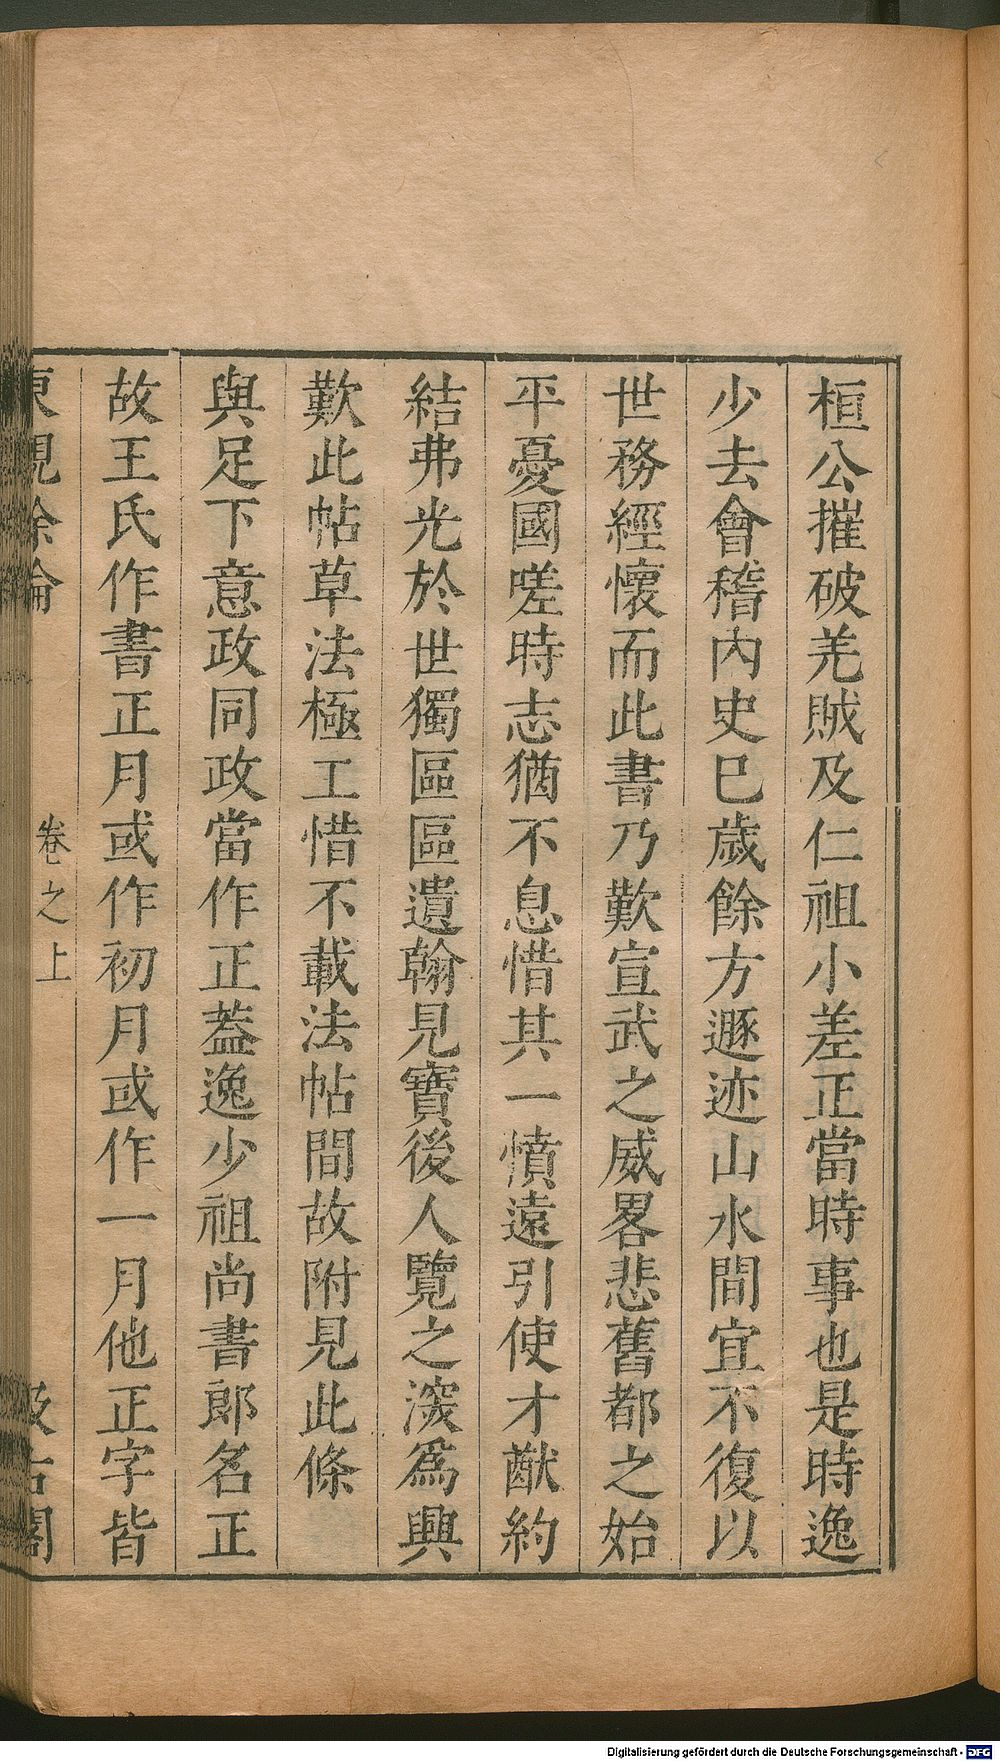 桓公摧破羌賊及仁祖小差正當時事也是時逸
少去會稽內史巳歲餘方遯迹山水間宜不復以
世務經懷而此書乃歎宣武之威畧悲舊都之始
平憂國嗟時志猶不息惜其一憤遠引使才猷約
結弗光於世獨區區遺翰見寶後人覽之深爲興
歎此帖草法極工惜不載法帖間故附見此條
與足下意政同政當作正葢逸少祖尚書郎名正
故王氏作書正月或作初月或作一月他正字皆
東觀餘論
卷之上
汲古閣
Digitalisierung gefördert durch die Deutsche Forschungsgemeinschaft - DFG